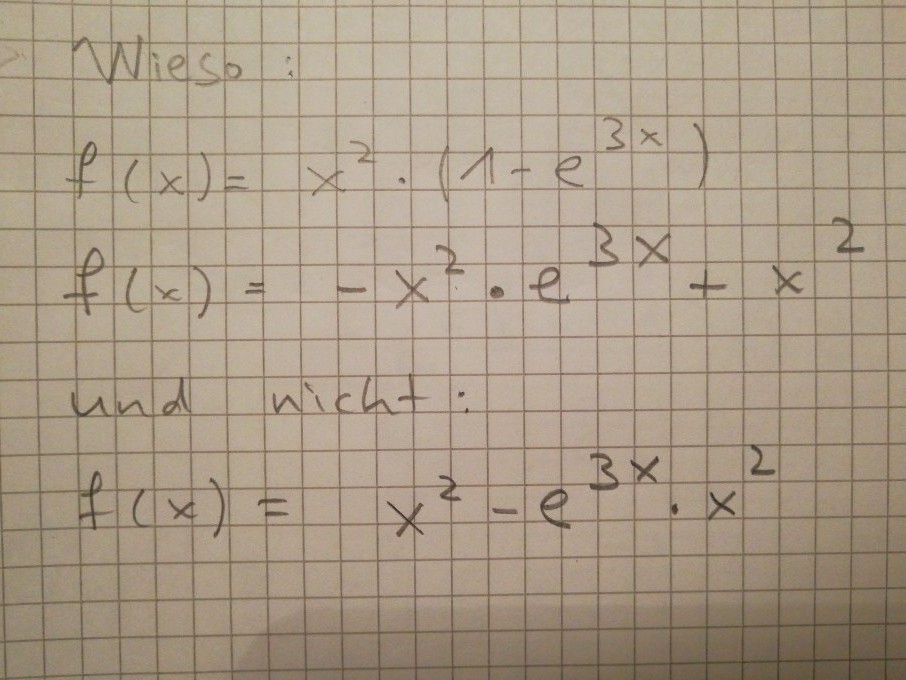 Wieso:
f(x) = x² · (1 - e³ˣ)
f(x) = - x² · e³ˣ + x²
und nicht:
f(x) = x² - e³ˣ · x²